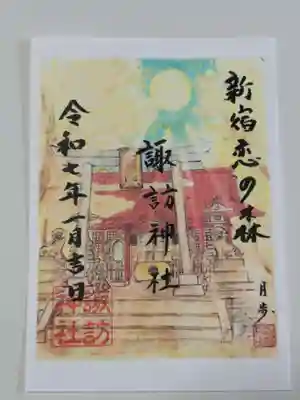 新宿恋の森
月歩
諏訪神社
令和七年一月吉日
諏訪
神社